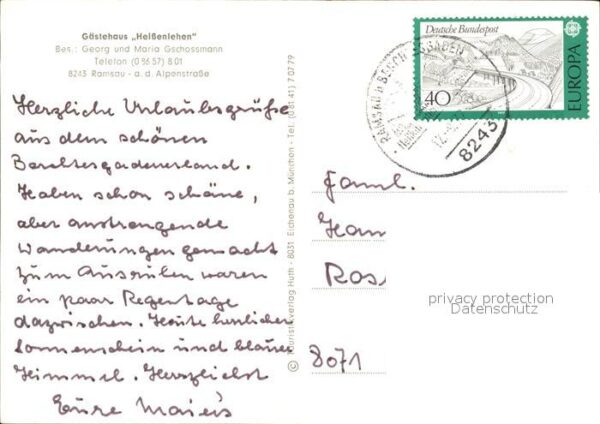 Gästehaus „Heißenlehen"
Bes.: Georg und Maria Gschossmann
Telefon (0 86 57) 8 01
8243 Ramsau - a. d. Alpenstraße
Herzliche Urlaubsgrüße
aus dem schönen
Berchtesgadenerland.
Haben schon schöne,
aber anstrengende
Wanderungen gemacht
zum Ausruhen waren
ein paar Regentage
dazwischen. Heute herrlicher
Sonnenschein und blauer
Himmel. Herzlichst
Eure Maier's
© Touristikverlag Huth - 8031 Eichenau b. München - Tel. (0 81 41) 7 07 79
Deutsche Bundespost
40
EUROPA
RAMSAU B BERCHTESGADEN
8243
Famil.
Ros
8071
privacy protection
Datenschutz